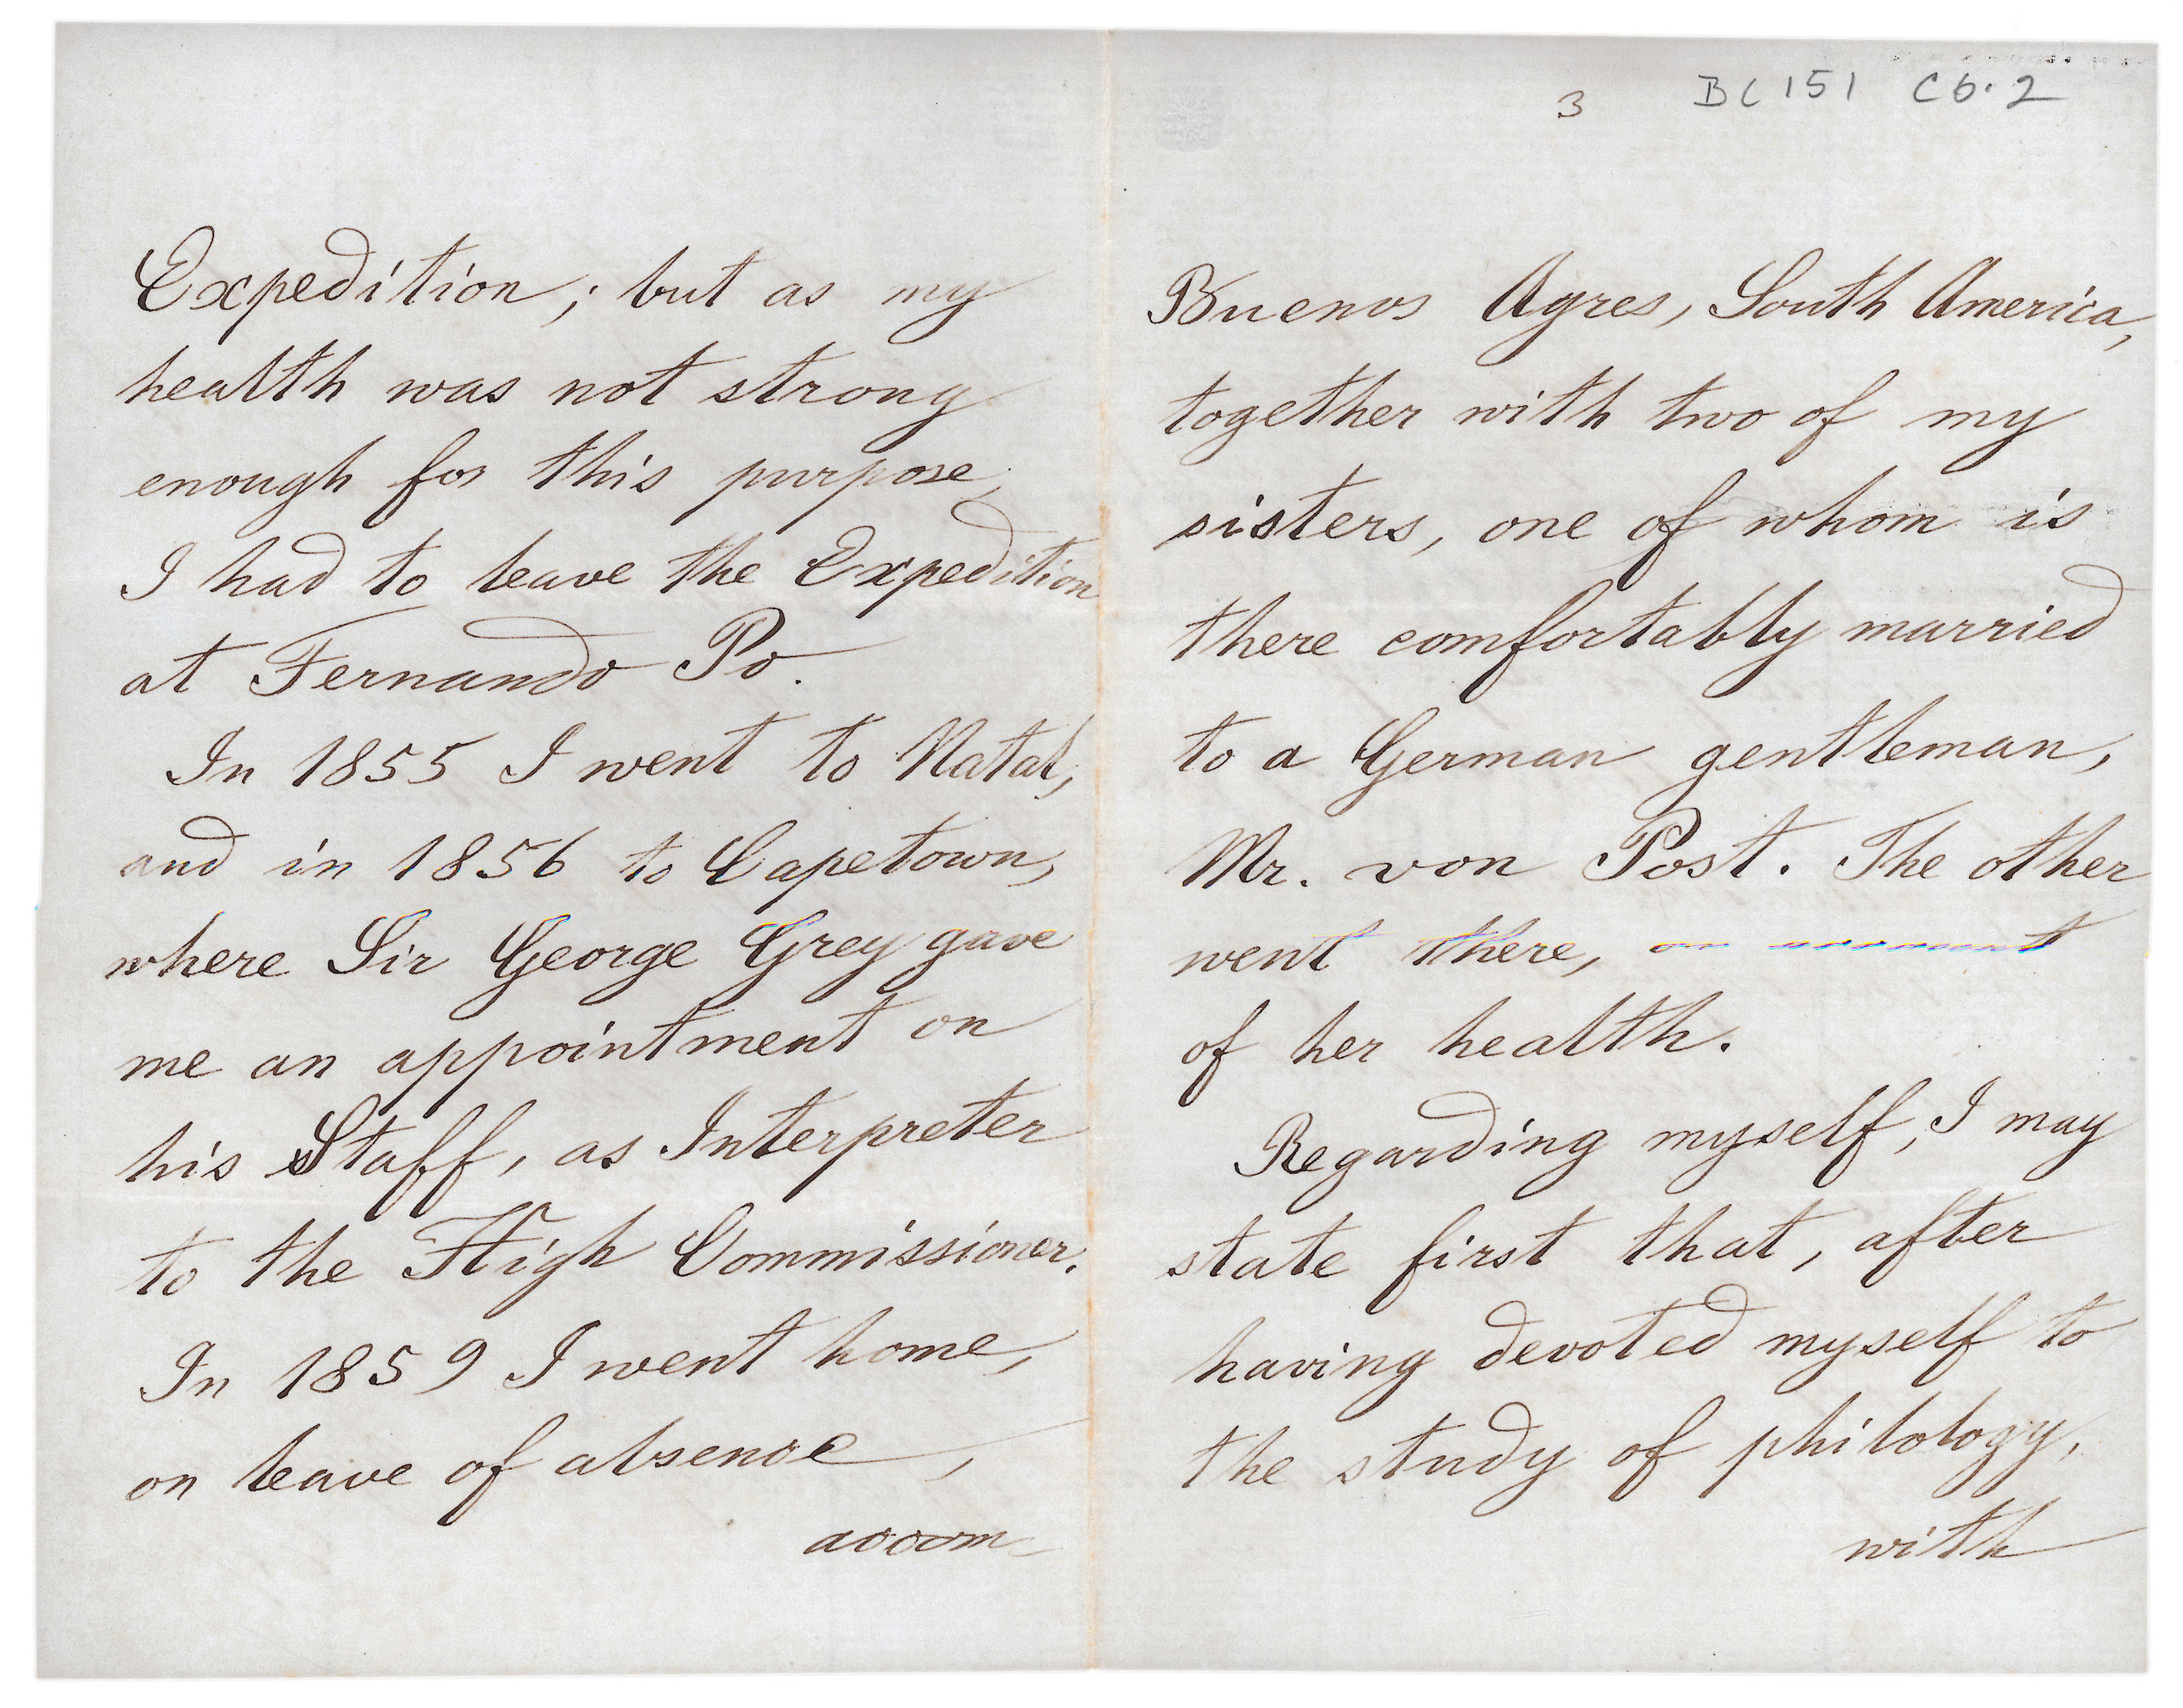 Expedition; but as my
health was not strong
enough for this purpose,
I had to leave the Expedition
at Fernando Po.
In 1855 I went to Natal,
and in 1856 to Capetown,
where Sir George Grey gave
me an appointment on
his Staff, as Interpreter
to the High Commissioner.
In 1859 I went home,
on leave of absence,
accom
3 BC 151 C6.2
Buenos Ayres, South America,
together with two of my
sisters, one of whom is
there comfortably married
to a German gentleman,
Mr. von Post. The other
went there, on account
of her health.
Regarding myself, I may
state first that, after
having devoted myself to
the study of philology,
with